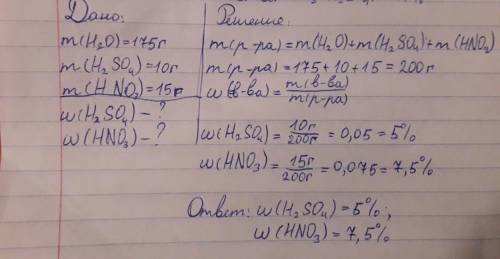 Дано:
m(H₂O)=175г
m(H₂SO₄)=10г
m(HNO₃)=15г
w(H₂SO₄)-?
w(HNO₃)-?
Решение:
m(р-ра)=m(H₂O)+m(H₂SO₄)+m(HNO₃)
m(р-ра)=175+10+15=200г
w(в-ва)=m(в-ва)/m(р-ра)
w(H₂SO₄)=10г/200г=0,05=5%
w(HNO₃)=15г/200г=0,075=7,5%
Ответ: w(H₂SO₄)=5%;
w(HNO₃)=7,5%